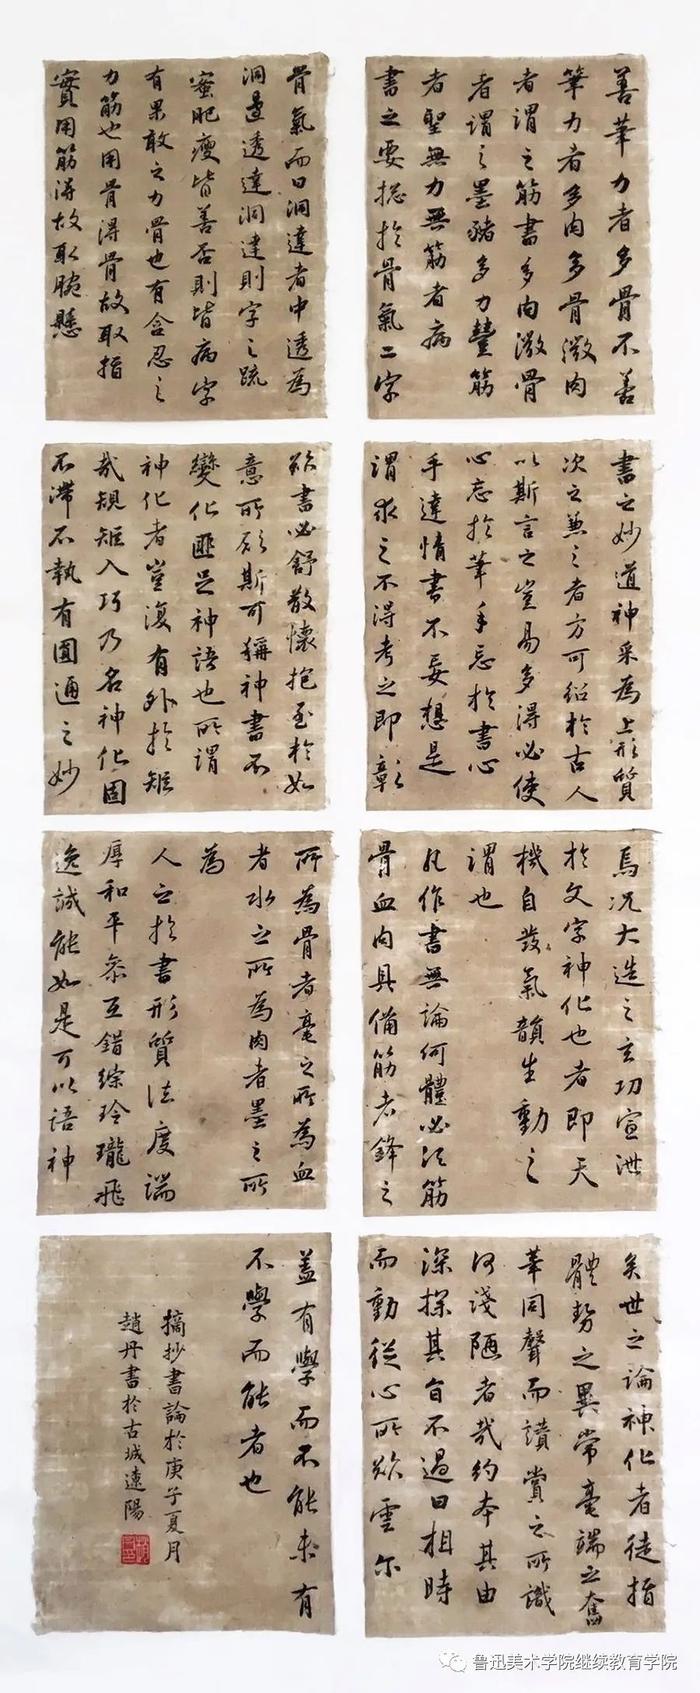 善筆力者多骨不善
筆力者多肉多骨微肉
者謂之筋書多肉微骨
者謂之墨豬多力豐筋
者聖無力無筋者病
書之要揔扵骨氣二字
骨氣而曰洞達者中透為
洞邊透達洞達則字之疏
蜜肥瘦皆善否則皆病字
有果敢之力骨也有含忍之
力筋也用骨得骨故取指
實用筋得故取腕懸
書之妙道神采為上形質
次之兼之者方可紹於古人
以斯言之豈易多得必使
心忘扵筆手忘扵書心
手達情書不妄想是
謂求之不得考之即彰
欲書必舒散懷抱至扵如
意所願斯可稱神書不
變化匪足神語也所謂
神化者豈復有外扵矩
哉規矩入巧乃名神化固
不滯不執有圓通之妙
焉況大造之玄功宣洩
扵文字神化也者即天
機自發氣韻生動之
謂也
凡作書無論何體必須筋
骨血肉具備筋者鋒之
所為骨者毫之所為血
者水之所為肉者墨之所
為
人之扵書形質法度端
厚和平參互錯綜玲瓏飛
逸誠能如是可以語神
矣世之論神化者徒指
體勢之異常毫端之奮
筆同聲而讚賞之所識
何淺陋者哉約本其由
深探其旨不過曰相時
而動從心所欲雲尔
蓋有學而不能未有
不學而能者也
摘抄書論扵庚子夏月
趙丹書扵古城遼陽
鲁迅美术学院继续教育学院